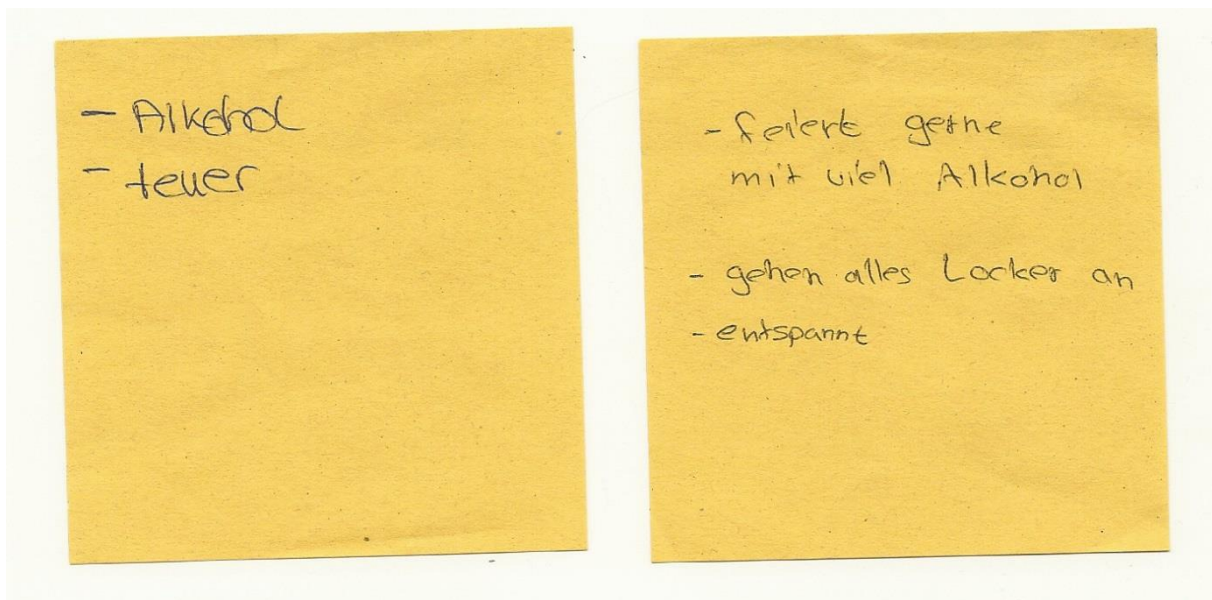 - Alkohol
- teuer
- feiert gerne
mit viel Alkohol
- gehen alles Locker an
- entspannt